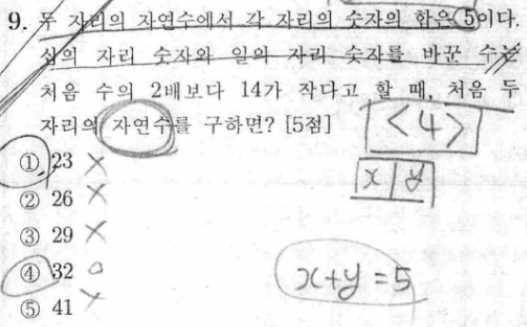 9. 두 자리의 자연수에서 각 자리의 숫자의 합은 5이다.
십의 자리 숫자와 일의 자리 숫자를 바꾼 수는
처음 수의 2배보다 14가 작다고 할 때, 처음 두
자리의 자연수를 구하면? [5점]
<4>
① 23 ×
x y
② 26 ×
③ 29 ×
④ 32 o
x+y=5
⑤ 41 ×